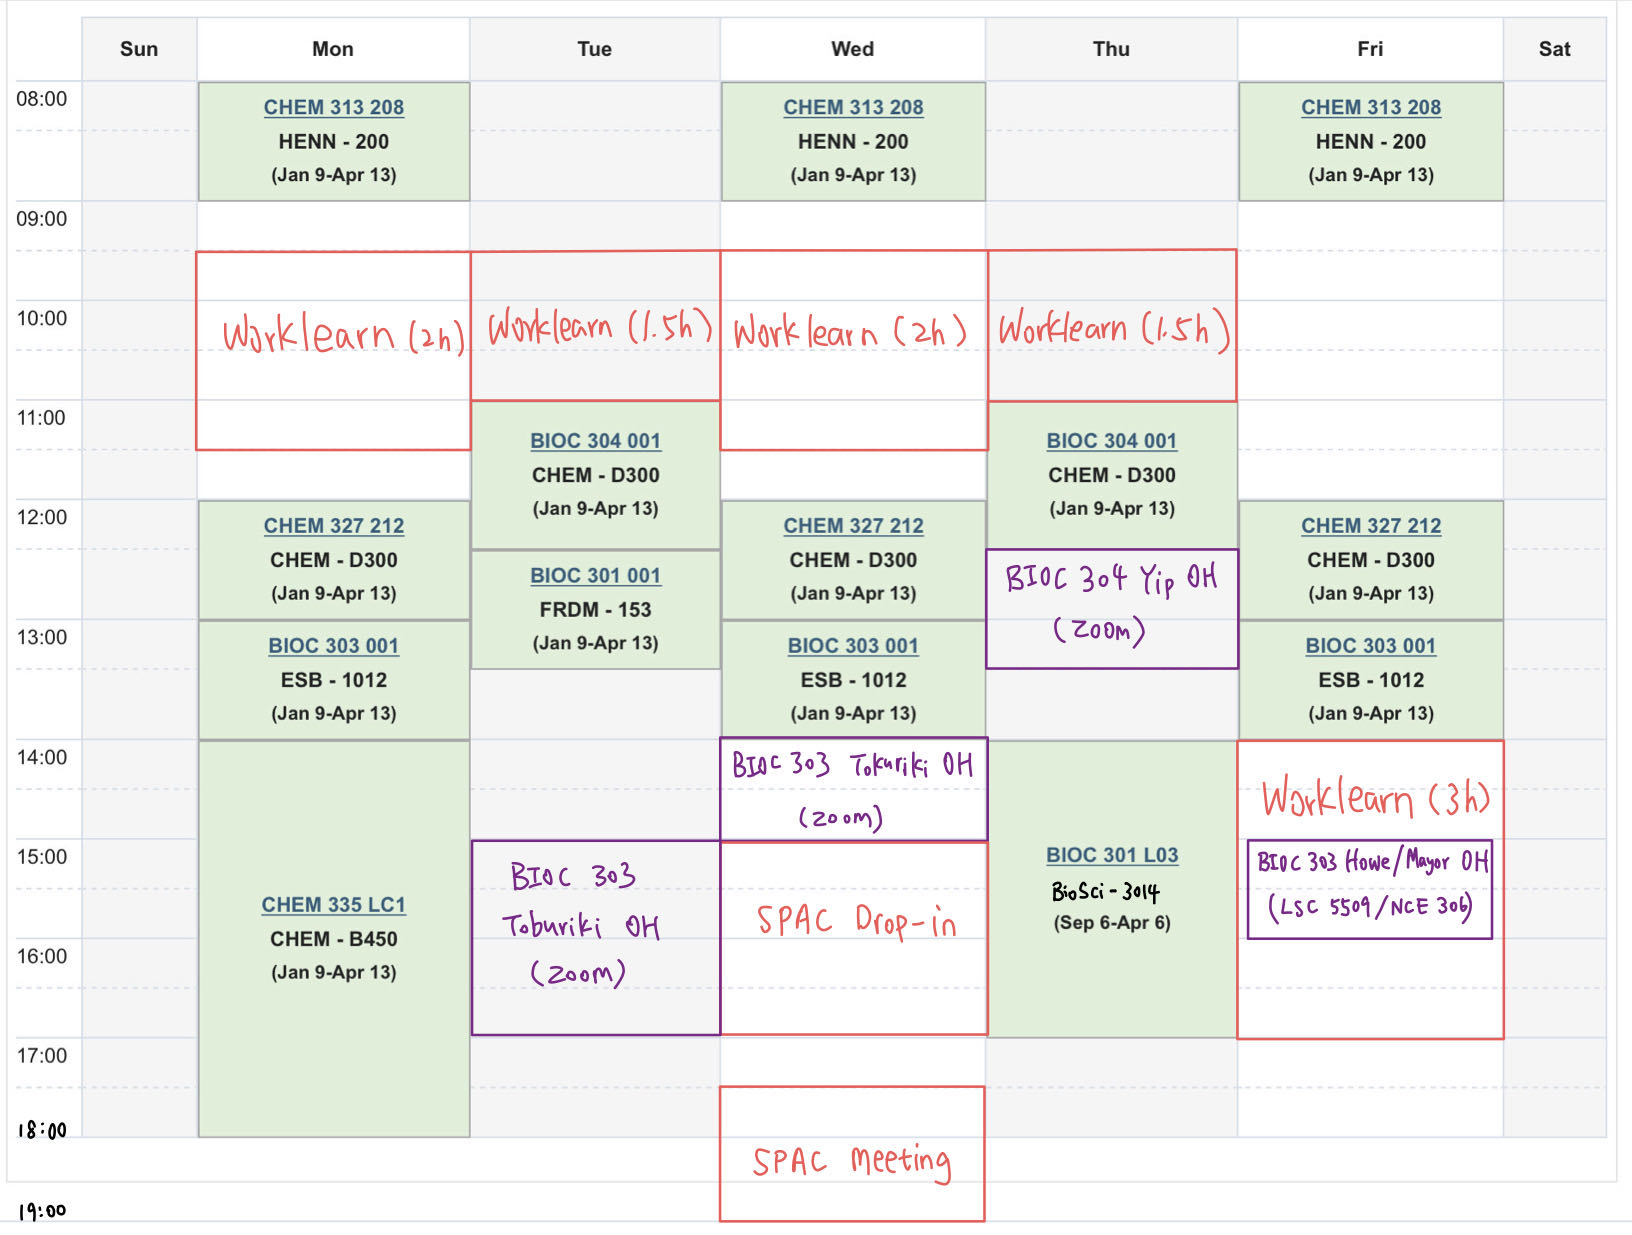 Sun Mon Tue Wed Thu Fri Sat
08:00
CHEM 313 208
HENN - 200
(Jan 9-Apr 13)
CHEM 313 208
HENN - 200
(Jan 9-Apr 13)
CHEM 313 208
HENN - 200
(Jan 9-Apr 13)
09:00
10:00
Worklearn (2h)
Worklearn (1.5h)
Worklearn (2h)
Worklearn (1.5h)
11:00
BIOC 304 001
CHEM - D300
(Jan 9-Apr 13)
BIOC 304 001
CHEM - D300
(Jan 9-Apr 13)
12:00
CHEM 327 212
CHEM - D300
(Jan 9-Apr 13)
BIOC 301 001
FRDM - 153
(Jan 9-Apr 13)
CHEM 327 212
CHEM - D300
(Jan 9-Apr 13)
BIOC 304 Yip OH
(Zoom)
CHEM 327 212
CHEM - D300
(Jan 9-Apr 13)
13:00
BIOC 303 001
ESB - 1012
(Jan 9-Apr 13)
BIOC 303 001
ESB - 1012
(Jan 9-Apr 13)
BIOC 303 001
ESB - 1012
(Jan 9-Apr 13)
14:00
BIOC 303 Tokuriki OH
(zoom)
Worklearn (3h)
15:00
CHEM 335 LC1
CHEM - B450
(Jan 9-Apr 13)
BIOC 303
Toburiki OH
(zoom)
SPAC Drop-in
BIOC 301 L03
BioSci - 3014
(Sep 6-Apr 6)
BIOC 303 Howe/Mayor OH
(LSC 5509/NCE 306)
16:00
17:00
18:00
SPAC Meeting
19:00